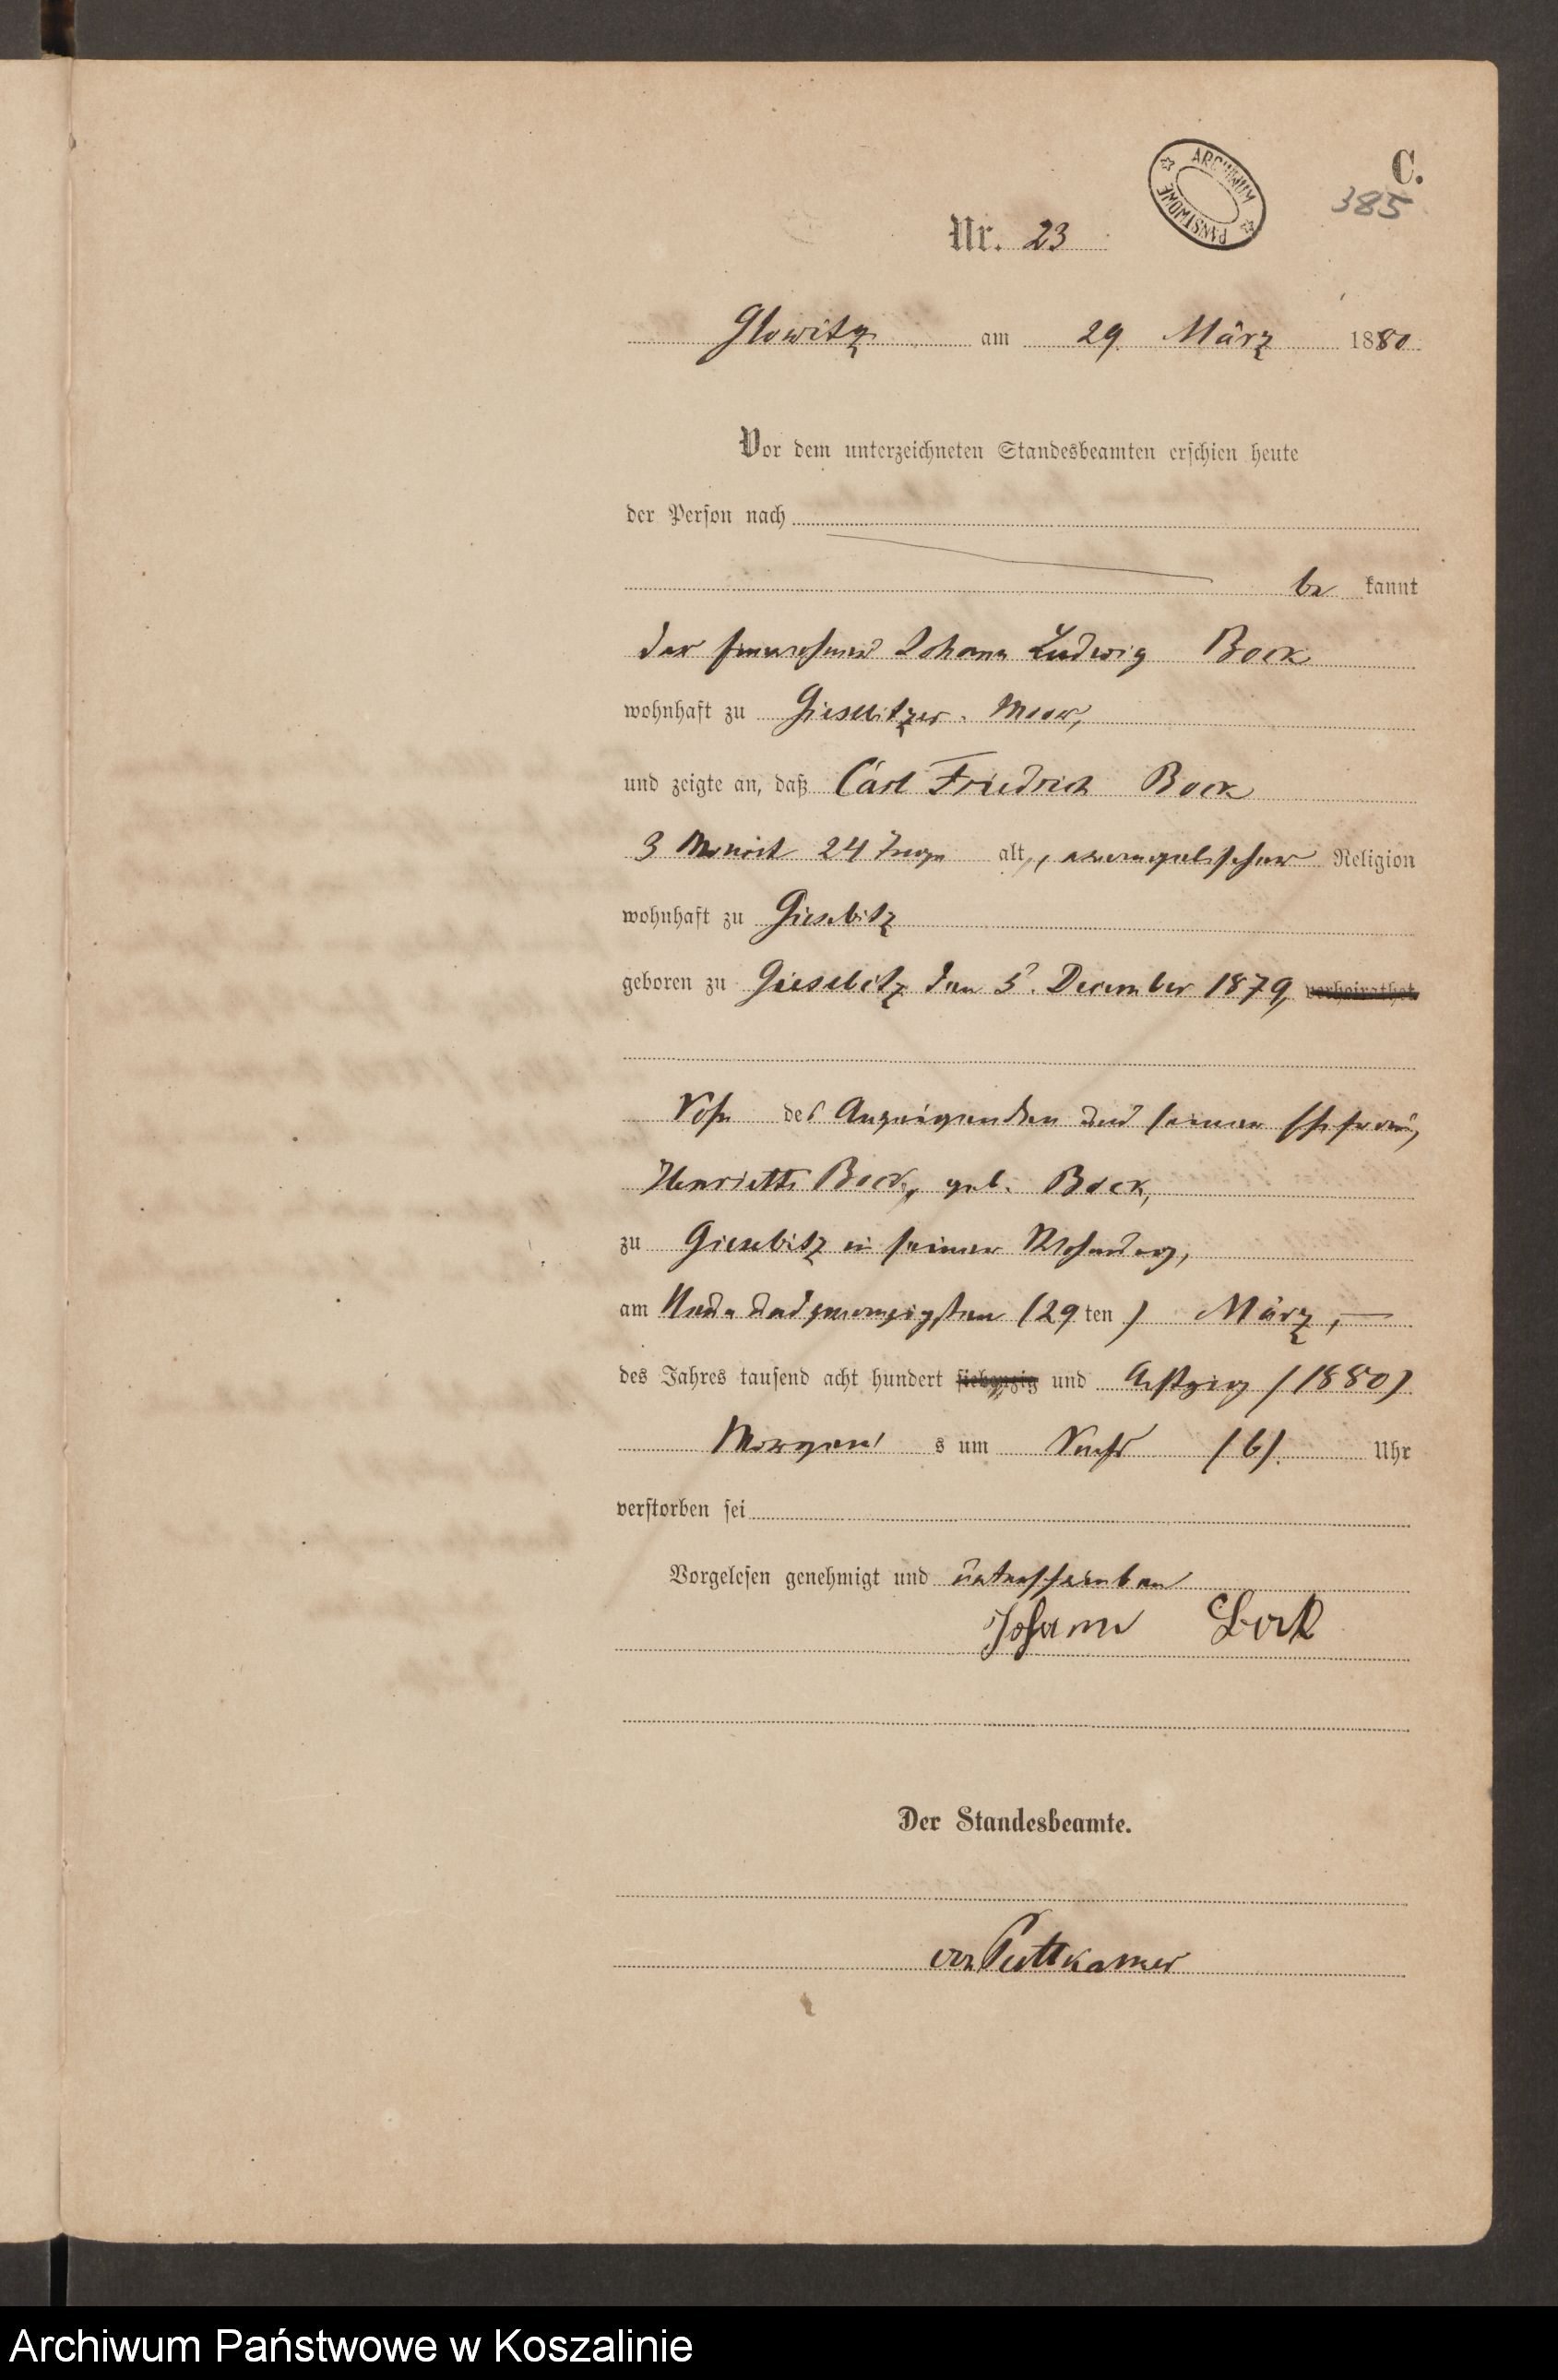 C.
385
ARCHIWUM PAŃSTWOWE
Nr. 23
Glowitz am 29. März 1880
Vor dem unterzeichneten Standesbeamten erschien heute
der Person nach
be kannt
der Einwohner Johann Ludwig Bock
wohnhaft zu Giesebitzer Moor,
und zeigte an, daß Carl Friedrich Bock
3 Monat 24 Tage alt, evangelischer Religion
wohnhaft zu Giesebitz
geboren zu Giesebitz den 5. December 1879, verheirathet
Sohn des Anzeigenden und seiner Ehefrau,
Henriette Bock, geb. Bock,
zu Giesebitz in seiner Wohnung,
am Neun und zwanzigsten (29ten) März,
des Jahres tausend acht hundert siebenzig und Achtzig (1880)
Morgens um Sechs (6) Uhr
verstorben sei
Vorgelesen genehmigt und unterschrieben
Johann Bock
Der Standesbeamte.
von Puttkamer
Archiwum Państwowe w Koszalinie